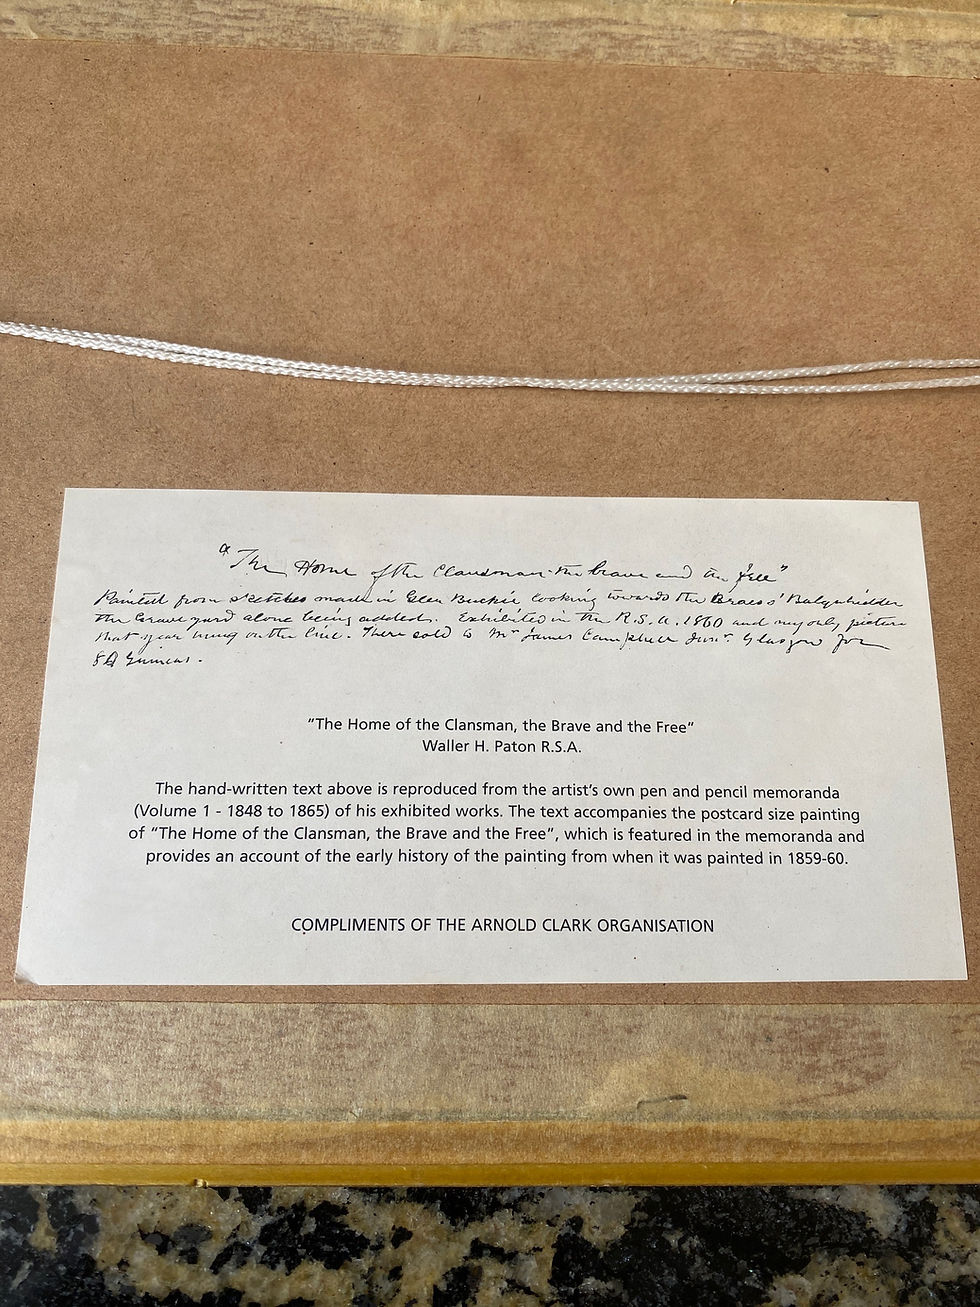 "The Home of the Clansman the brave and the free"
Painted from sketches made in Glen Buckie looking towards the Braes o' Balquhidder
the Graveyard alone being added. Exhibited in the R.S.A. 1860 and my only picture
that year hung on the line. There sold to Mr James Campbell Junr. Glasgow for
Guineas.
"The Home of the Clansman, the Brave and the Free"
Waller H. Paton R.S.A.
The hand-written text above is reproduced from the artist's own pen and pencil memoranda
(Volume 1 - 1848 to 1865) of his exhibited works. The text accompanies the postcard size painting
of "The Home of the Clansman, the Brave and the Free", which is featured in the memoranda and
provides an account of the early history of the painting from when it was painted in 1859-60.
COMPLIMENTS OF THE ARNOLD CLARK ORGANISATION